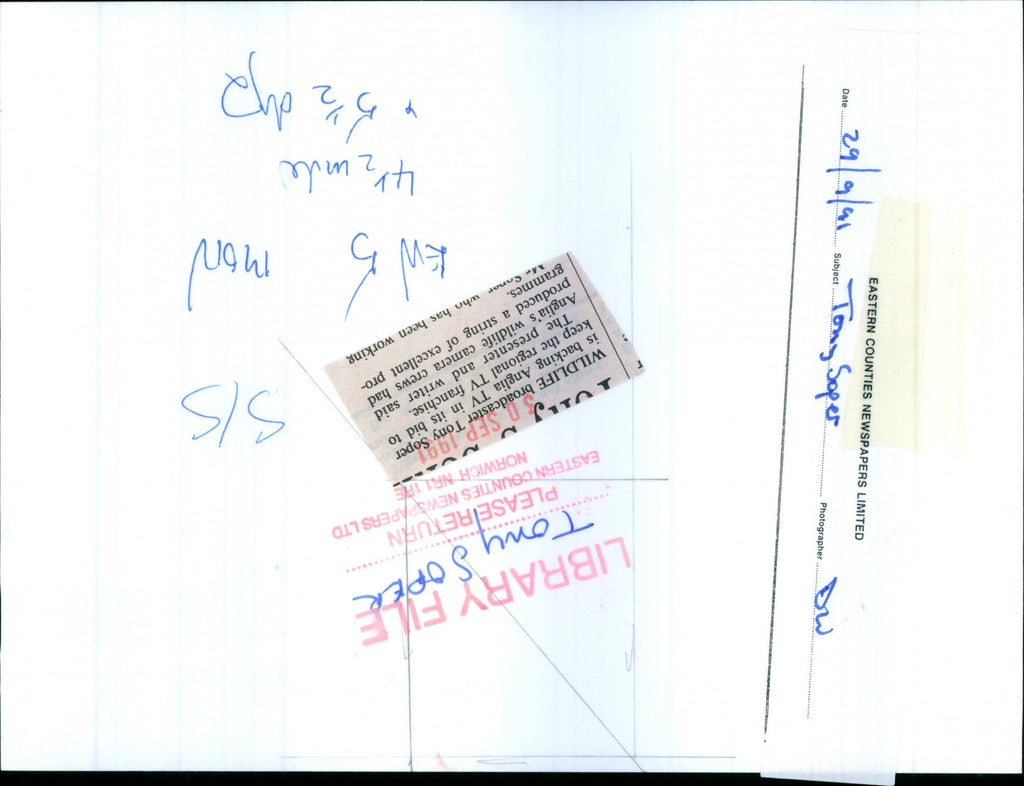 EASTERN COUNTIES NEWSPAPERS LIMITED
Date 29/9/91 Subject Tony Soper Photographer DW
LIBRARY FILE
Tony SOPER
PLEASE RETURN
EASTERN COUNTIES NEWSPAPERS LTD
NORWICH NR1 1RE
30 SEP 1991
WILDLIFE broadcaster Tony Soper
is backing Anglia TV in its bid to
keep the regional TV franchise.
The presenter and writer said
Anglia's wildlife camera crews had
produced a string of excellent pro-
grammes.
Mr Soper, who has been working
S/S
EN 5 MON
4½ wide
x 5½"